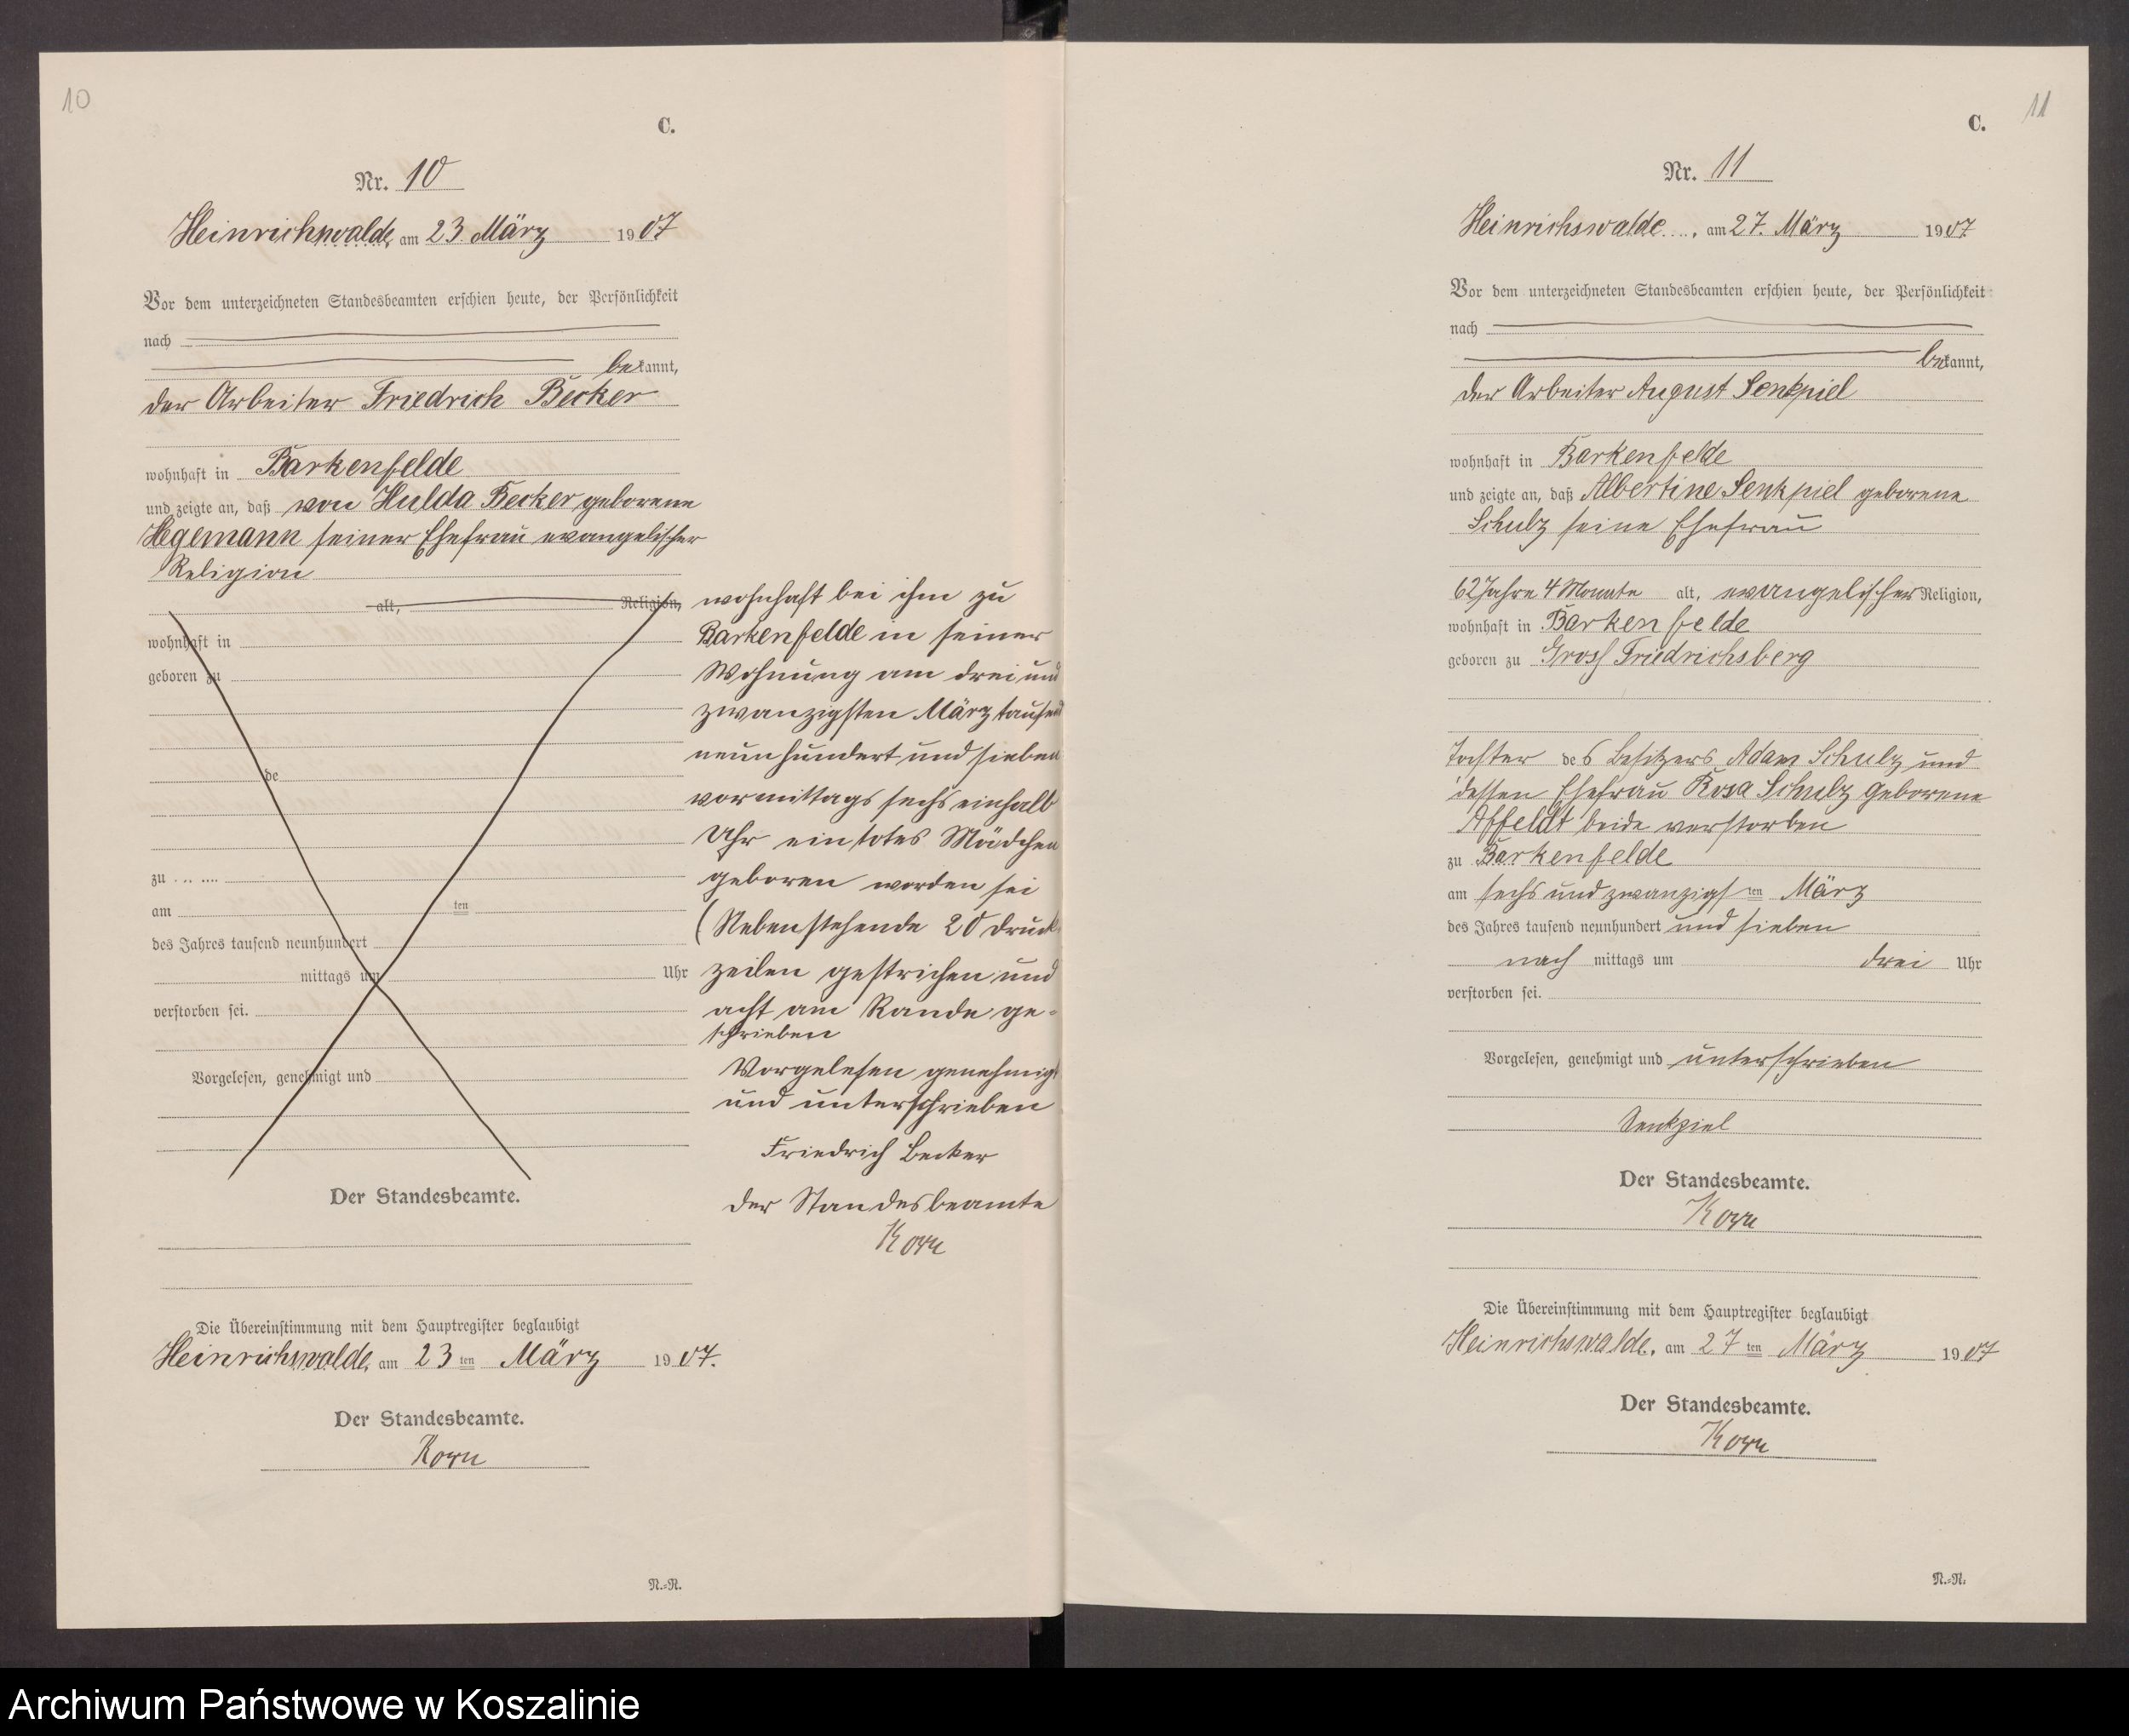 10
C.
Nr. 10
Heinrichswalde, am 23. März 1907
Vor dem unterzeichneten Standesbeamten erschien heute, der Persönlichkeit
nach
bekannt,
der Arbeiter Friedrich Becker
wohnhaft in Barkenfelde
und zeigte an, daß von Hulda Becker geborene
Hegemann seiner Ehefrau evangelischer
Religion
alt, Religion,
wohnhaft in
geboren zu
de
zu
am ten
des Jahres tausend neunhundert
mittags um Uhr
verstorben sei.
Vorgelesen, genehmigt und
wohnhaft bei ihm zu
Barkenfelde in seiner
Wohnung am drei und
zwanzigsten März tausend
neunhundert und sieben
vormittags sechs einhalb
Uhr ein totes Mädchen
geboren worden sei
(Nebenstehende 20 Druck
zeilen gestrichen und
acht am Rande ge-
schrieben
Vorgelesen genehmigt
und unterschrieben
Friedrich Becker
der Standesbeamte
Korn
Der Standesbeamte.
Die Übereinstimmung mit dem Hauptregister beglaubigt
Heinrichswalde, am 23 ten März 1907.
Der Standesbeamte.
Korn
N.=N.
11
C.
Nr. 11
Heinrichswalde, am 27. März 1907
Vor dem unterzeichneten Standesbeamten erschien heute, der Persönlichkeit
nach
bekannt,
der Arbeiter August Senkpiel
wohnhaft in Barkenfelde
und zeigte an, daß Albertine Senkpiel geborene
Schulz seine Ehefrau
62 Jahre 4 Monate alt, evangelischer Religion,
wohnhaft in Barkenfelde
geboren zu Gross Friedrichsberg
Tochter des Besitzers Adam Schulz und
dessen Ehefrau Rosa Schulz geborene
Affeldt beide verstorben
zu Barkenfelde
am sechs und zwanzigsten März
des Jahres tausend neunhundert und sieben
nach mittags um drei Uhr
verstorben sei.
Vorgelesen, genehmigt und unterschrieben
Senkpiel
Der Standesbeamte.
Korn
Die Übereinstimmung mit dem Hauptregister beglaubigt
Heinrichswalde, am 27 ten März 1907
Der Standesbeamte.
Korn
N.=N.
Archiwum Państwowe w Koszalinie